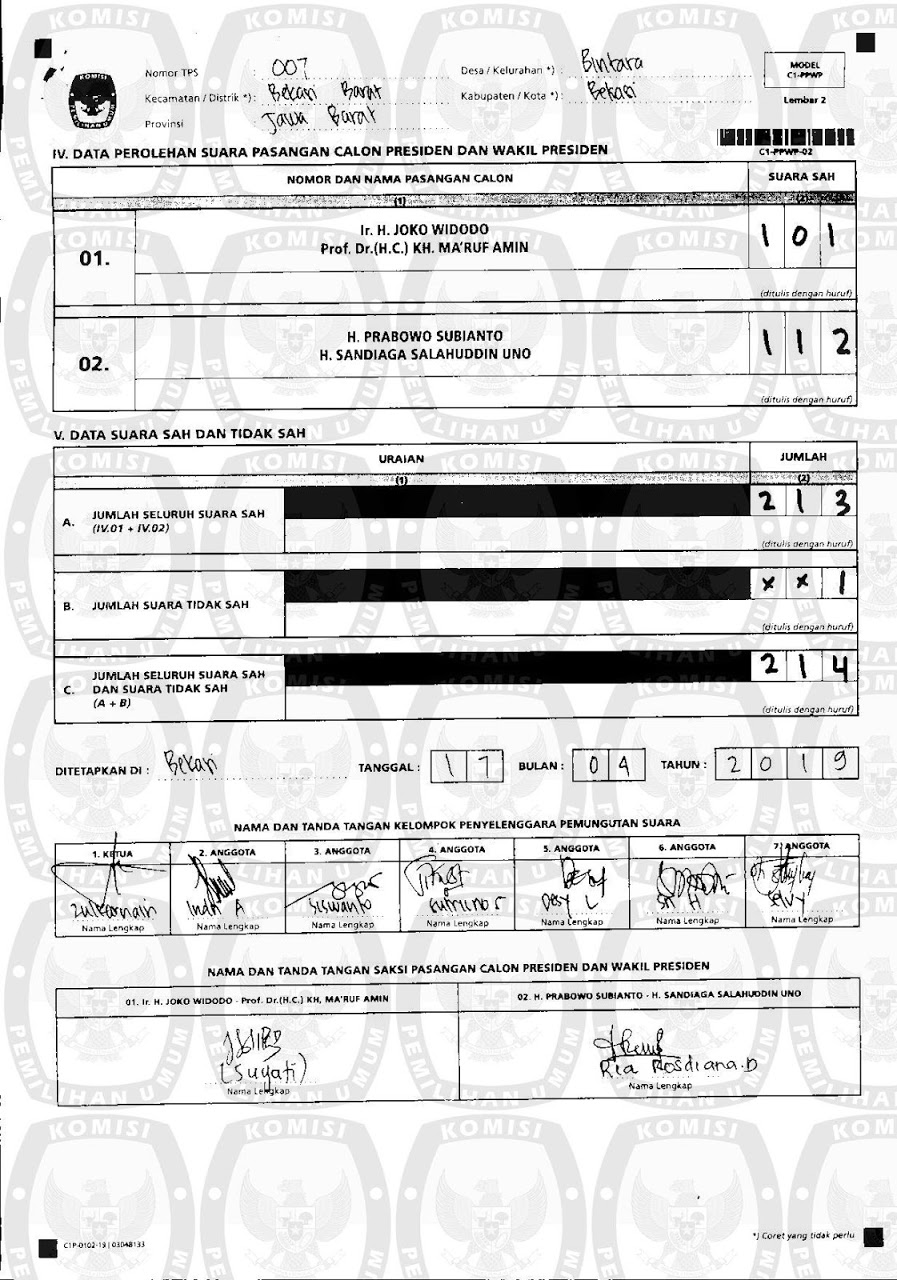 KOMISI
PEMILIHAN UMUM
Nomor TPS : 007
Desa / Kelurahan *) : Bintara
Kecamatan / Distrik *) : Bekasi Barat
Kabupaten / Kota *) : Bekasi
Provinsi Jawa Barat
MODEL
C1-PPWP
Lembar 2
C1-PPWP-02
IV. DATA PEROLEHAN SUARA PASANGAN CALON PRESIDEN DAN WAKIL PRESIDEN
NOMOR DAN NAMA PASANGAN CALON SUARA SAH
(1) (2)
01. Ir. H. JOKO WIDODO
Prof. Dr.(H.C.) KH. MA'RUF AMIN
1 0 1
(ditulis dengan huruf)
02. H. PRABOWO SUBIANTO
H. SANDIAGA SALAHUDDIN UNO
1 1 2
(ditulis dengan huruf)
V. DATA SUARA SAH DAN TIDAK SAH
URAIAN JUMLAH
(1) (2)
A. JUMLAH SELURUH SUARA SAH
(IV.01 + IV.02)
2 1 3
(ditulis dengan huruf)
B. JUMLAH SUARA TIDAK SAH
x x 1
(ditulis dengan huruf)
C. JUMLAH SELURUH SUARA SAH
DAN SUARA TIDAK SAH
(A + B)
2 1 4
(ditulis dengan huruf)
DITETAPKAN DI : Bekasi TANGGAL : 17 BULAN : 04 TAHUN : 2019
NAMA DAN TANDA TANGAN KELOMPOK PENYELENGGARA PEMUNGUTAN SUARA
1. KETUA 2. ANGGOTA 3. ANGGOTA 4. ANGGOTA 5. ANGGOTA 6. ANGGOTA 7. ANGGOTA
Zulkarnain Indri A Siswanto Desy L Sri H Selvy
Nama Lengkap Nama Lengkap Nama Lengkap Nama Lengkap Nama Lengkap Nama Lengkap Nama Lengkap
NAMA DAN TANDA TANGAN SAKSI PASANGAN CALON PRESIDEN DAN WAKIL PRESIDEN
01. Ir. H. JOKO WIDODO - Prof. Dr.(H.C.) KH, MA'RUF AMIN
02. H. PRABOWO SUBIANTO - H. SANDIAGA SALAHUDDIN UNO
(Suyati)
Ria Rosdiana.D
Nama Lengkap Nama Lengkap
C1P-0102-19 | 03048133
*) Coret yang tidak perlu